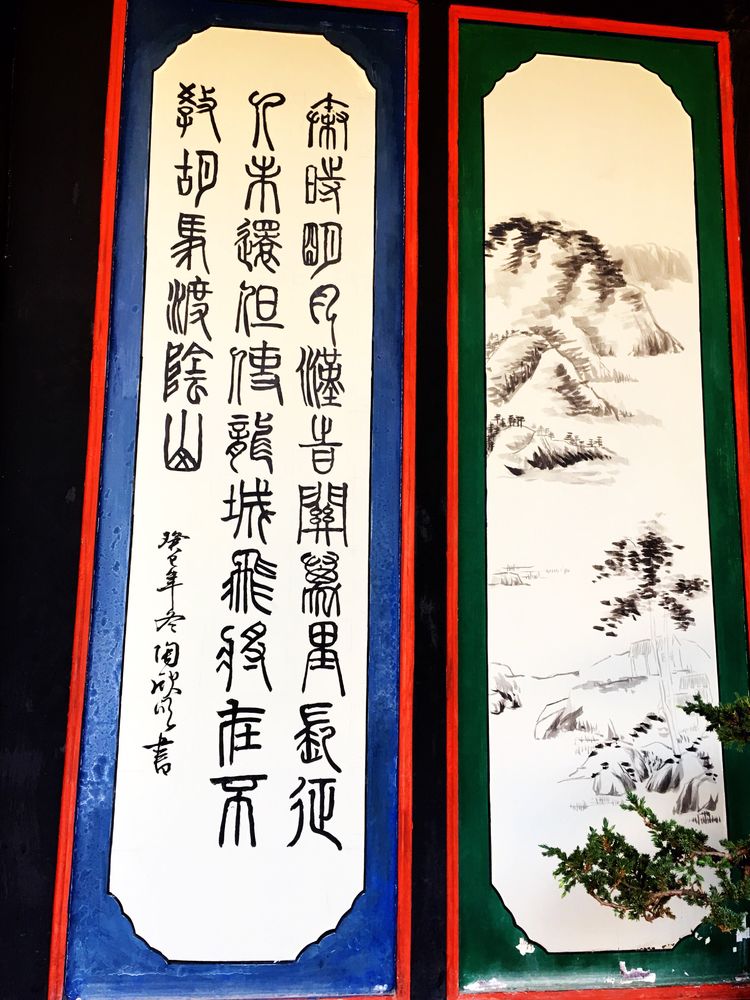 秦時明月漢時關萬里長征
人未還但使龍城飛將在不
教胡馬渡陰山
癸巳年冬陶欣書